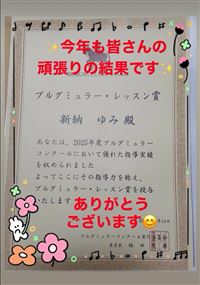 今年も皆さんの
頑張りの結果です
ブルグミュラー・レッスン賞
新納 ゆみ 殿
あなたは、2025年度ブルグミュラー
コンクールにおいて優れた指導実績
を収められました
よってここにその指導力を称え、
ブルグミュラー・レッスン賞を授与
いたします
ありがとう
ございます😊
ブルグミュラーコンクール実行